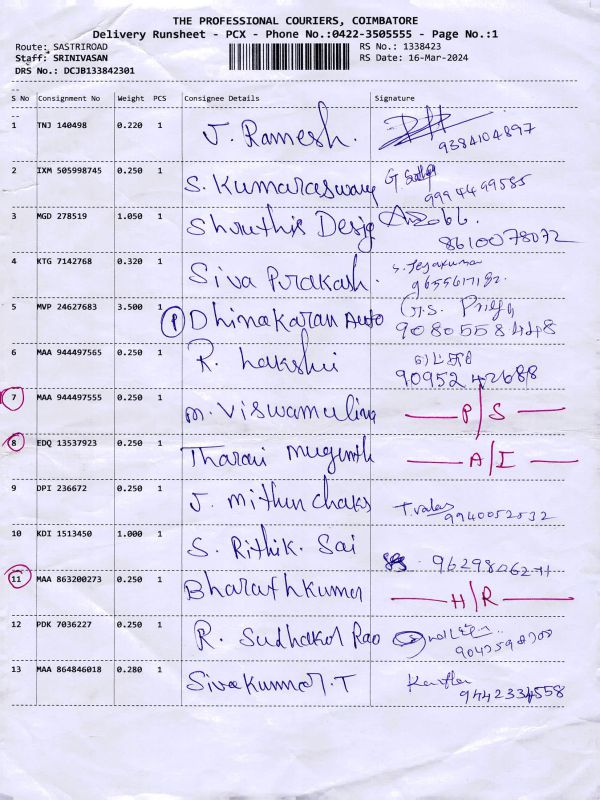 THE PROFESSIONAL COURIERS, COIMBATORE
Delivery Runsheet - PCX - Phone No.:0422-3505555 - Page No.:1
Route: SASTRIROAD RS No.: 1338423
Staff: SRINIVASAN RS Date: 16-Mar-2024
DRS No.: DCJB133842301
S No Consignment No Weight PCS Consignee Details Signature
1 TNJ 140498 0.220 1 J. Ramesh.
9384104897
2 IXM 505998745 0.250 1 S. Kumaraswamy G.
9994499585
3 MGD 278519 1.050 1 Shruthis Desig
8610078072
4 KTG 7142768 0.320 1 Siva Prakash. S. Jeyakumar
5 MVP 24627683 3.500 1 (P) Dhinakaran Auto G.S. Priya
9080558448
6 MAA 944497565 0.250 1 R. Lakshmi
90952 42688
7 MAA 944497555 0.250 1 P/S
8 EDQ 13537923 0.250 1 Tharani A/I
9 DPI 236672 0.250 1 J. Mithun
9940052532
10 KDI 1513450 1.000 1 S. Rithik. Sai
11 MAA 863200273 0.250 1 Bharathkumar H/R
12 PDK 7036227 0.250 1 R. Sudhakar Rao
13 MAA 864846018 0.280 1 Sivakumar.T
9442334558